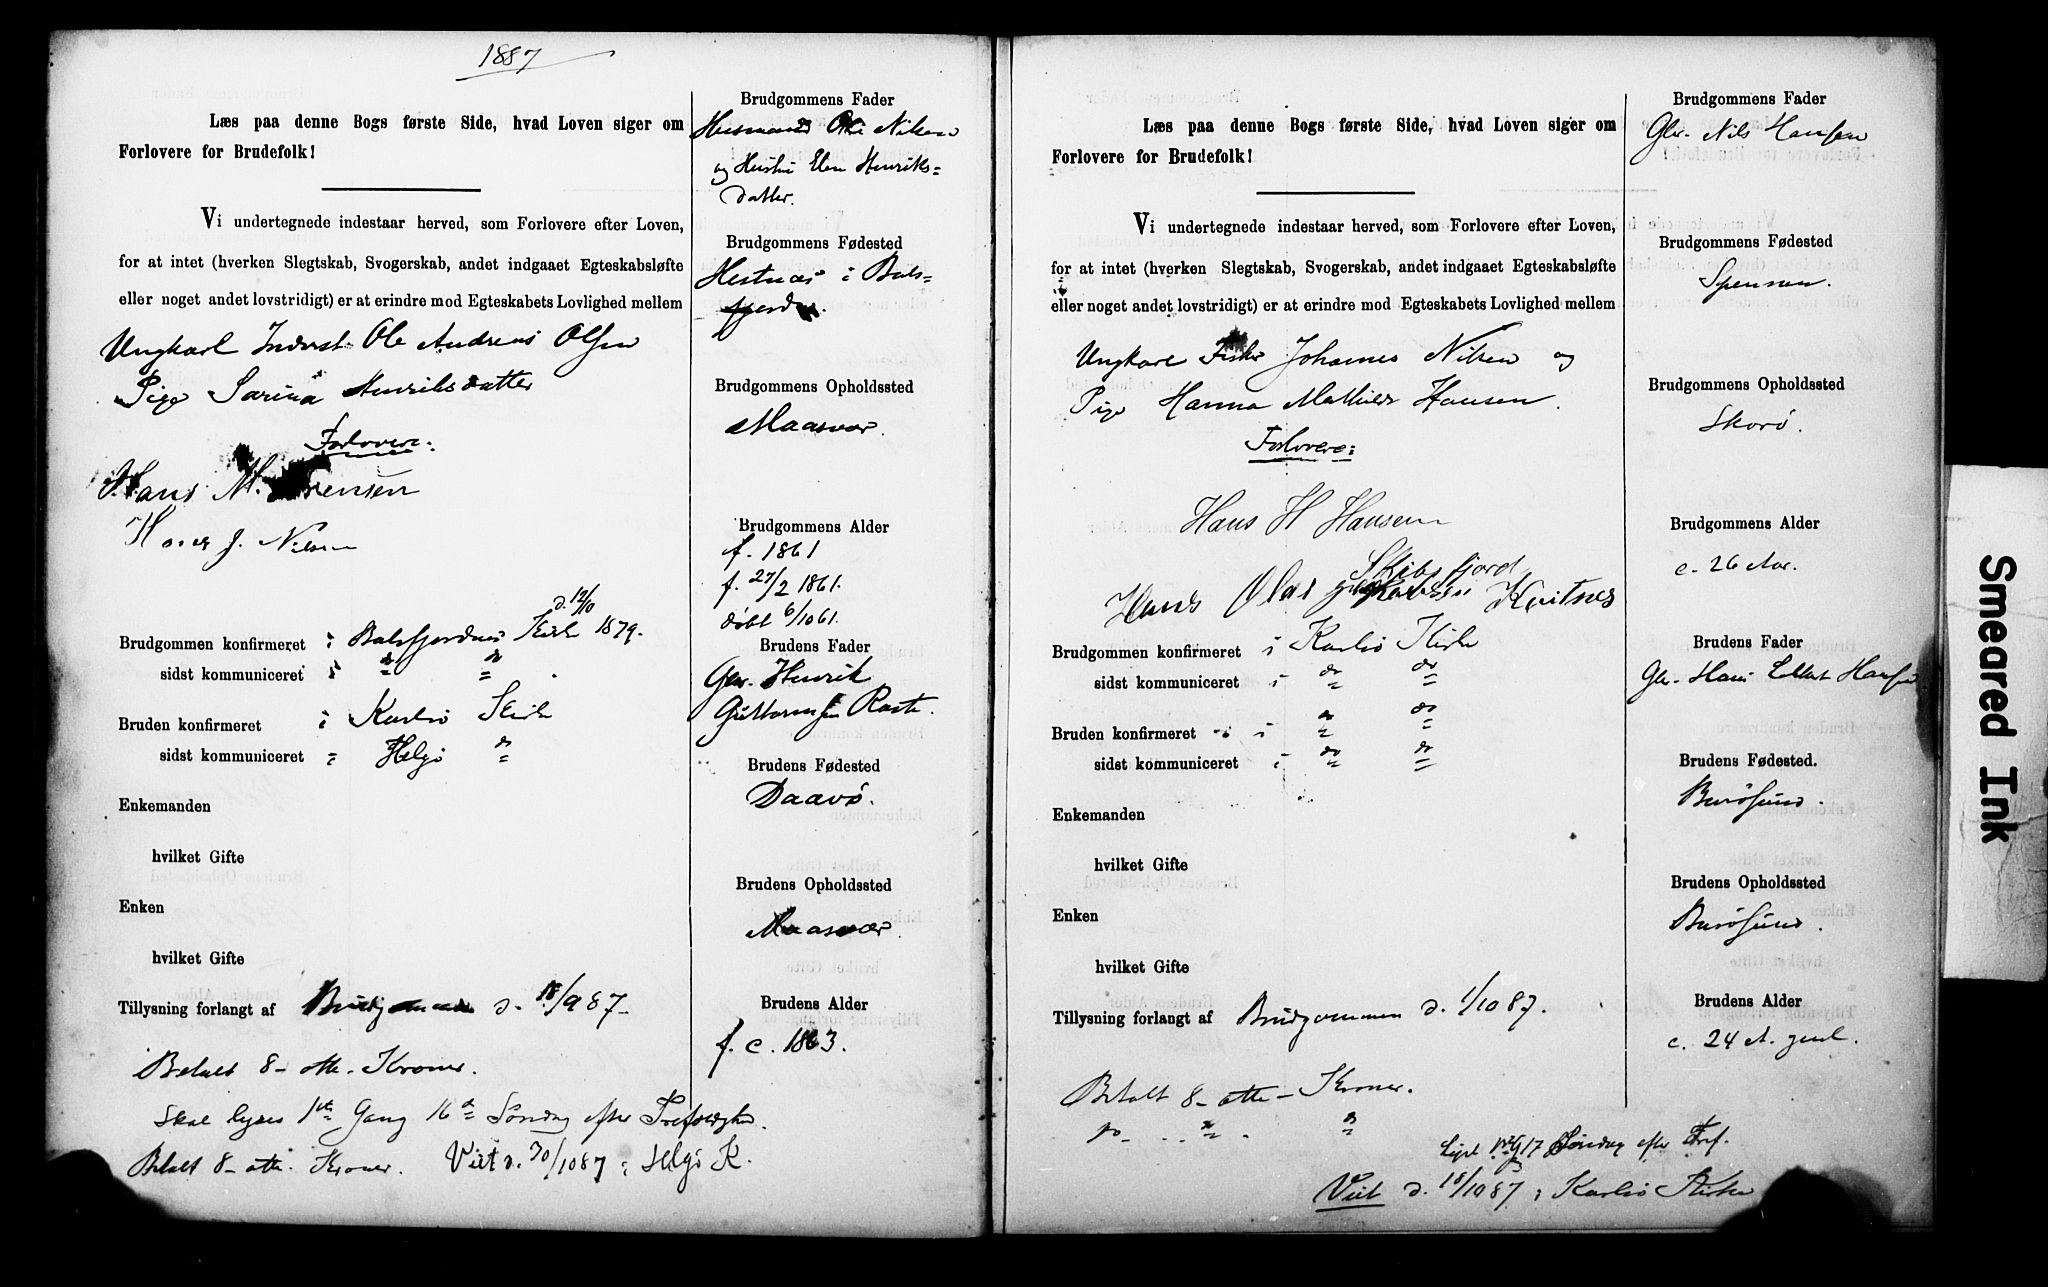 1887
Læs paa denne Bogs første Side, hvad Loven siger om
Forlovere for Brudefolk!
Vi undertegnede indestaar herved, som Forlovere efter Loven,
for at intet (hverken Slegtskab, Svogerskab, andet indgaaet Egteskabsløfte
eller noget andet lovstridigt) er at erindre mod Egteskabets Lovlighed mellem
Ungkarl Inderst Ole Andreas Olsen
Pige Sarina Henriksdatter
Forlovere:
Hans M. Sørensen
Hans J. Nilsen
Brudgommen konfirmeret i Balsfjordens Kirke d. 12/10 1879.
sidst kommuniceret i do do
Bruden konfirmeret i Karlsø Kirke
sidst kommuniceret " Helgø do
Enkemanden
hvilket Gifte
Enken
hvilket Gifte
Tillysning forlangt af Brudgommen d. 18/9 87
Betalt 8 - otte - Kroner.
Skal lyses 1ste Gang 16de Søndag efter Trefoldighed.
Betalt 8 - otte - Kroner. Viet d. 20/10 87 i Helgø K.
Brudgommens Fader
Husmand Ole Nilsen
og Hustru Elen Henriks=
datter.
Brudgommens Fødested
Hestnæs i Bals-
fjorden.
Brudgommens Opholdssted
Maasvær.
Brudgommens Alder
f. 1861
f. 27/2 1861.
døbt 6/10 61.
Brudens Fader
Gbr. Henrik
Guttormsen Raste.
Brudens Fødested
Daavø.
Brudens Opholdssted
Maasvær.
Brudens Alder
f. c. 1863.
Læs paa denne Bogs første Side, hvad Loven siger om
Forlovere for Brudefolk!
Vi undertegnede indestaar herved, som Forlovere efter Loven,
for at intet (hverken Slegtskab, Svogerskab, andet indgaaet Egteskabsløfte
eller noget andet lovstridigt) er at erindre mod Egteskabets Lovlighed mellem
Ungkarl Fisker Johannes Nilsen og
Pige Hanna Mathilde Hansen.
Forlovere:
Hans H Hansen
Skibsfjord
Hans Olai Jakobsen Kvitnes
Brudgommen konfirmeret i Karlsø Kirke
sidst kommuniceret i do do
Bruden konfirmeret i do do
sidst kommuniceret i do do
Enkemanden
hvilket Gifte
Enken
hvilket Gifte
Tillysning forlangt af Brudgommen d. 1/10 87.
Betalt 8 - otte - Kroner.
do do do
Lyst 17 Søndag efter Tref.
Viet d. 18/10 87 i Karlsø Kirke
Brudgommens Fader
Gbr. Nils Hansen
Brudgommens Fødested
Spennen.
Brudgommens Opholdssted
Skorø.
Brudgommens Alder
c. 26 Aar.
Brudens Fader
Gbr. Hans Hansen
Brudens Fødested.
Burøsund.
Brudens Opholdssted
Burøsund.
Brudens Alder
c. 24 A. gml.
Smeared Ink